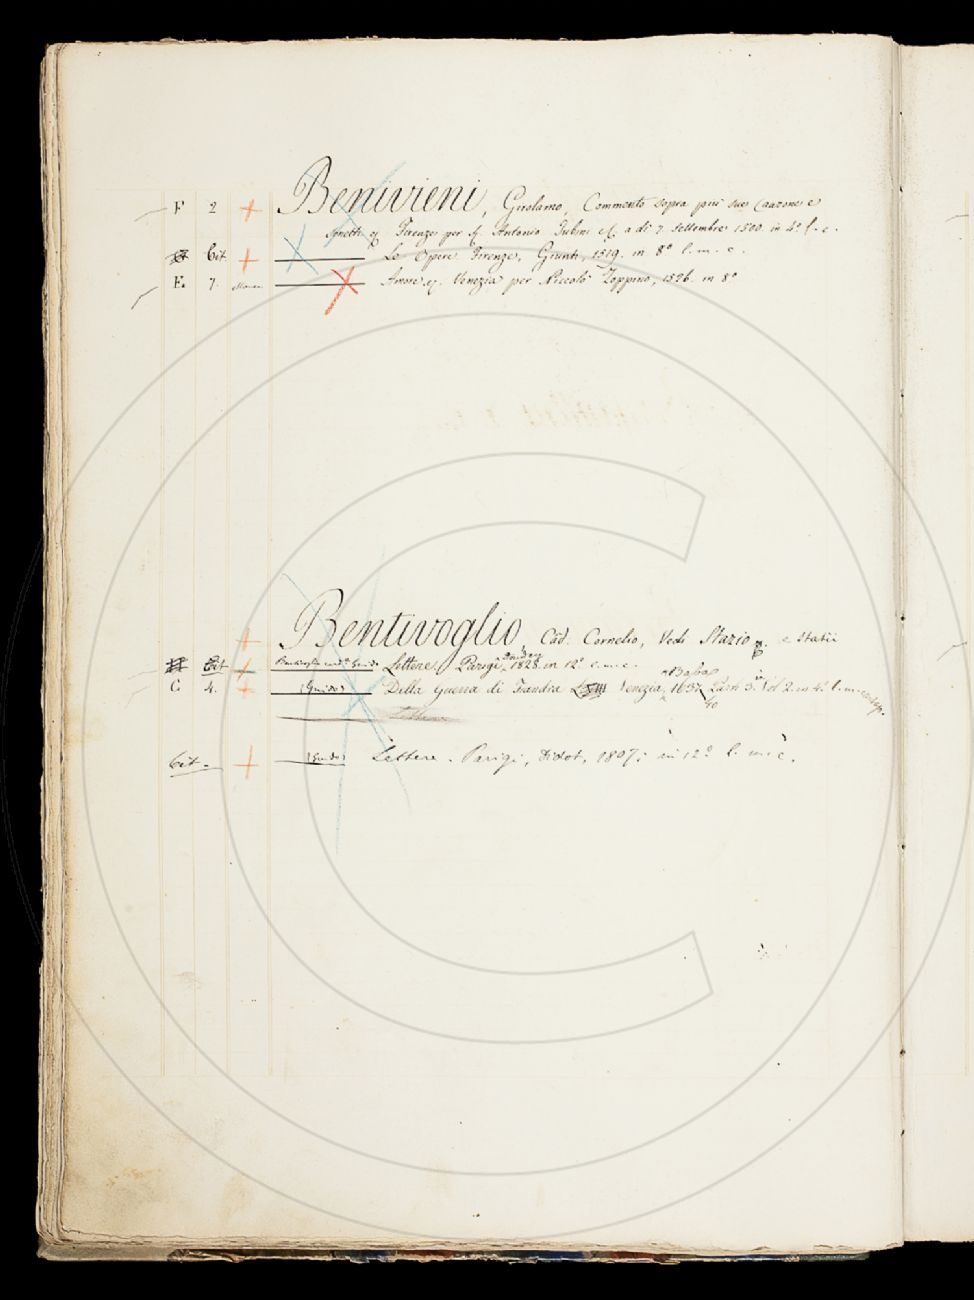 F 2 Benivieni, Girolamo, Commento sopra più sue Canzone e
Sonetti &. Firenze per S. Antonio Tubini &. a dì 7 Settembre 1500. in 4° l. c.
Cit Le Opere Firenze, Giunti, 1519. in 8° l. m. c.
E 7. Amore &. Venezia per Niccolò Zoppino, 1526. in 8°
Bentivoglio, Card. Cornelio, Vedi Stazio e Statii
Cit Bentivoglio card. Guido Lettere Parigi, 1828. in 12° l. m. c.
C 4. (Guido) Della guerra di Fiandra Venezia, 1637 Parti 3. in Vol 2. in 4° l. m.
40
Lettere
Cit. (Guido) Lettere. Parigi, Didot, 1807; in 12° l. m. c.